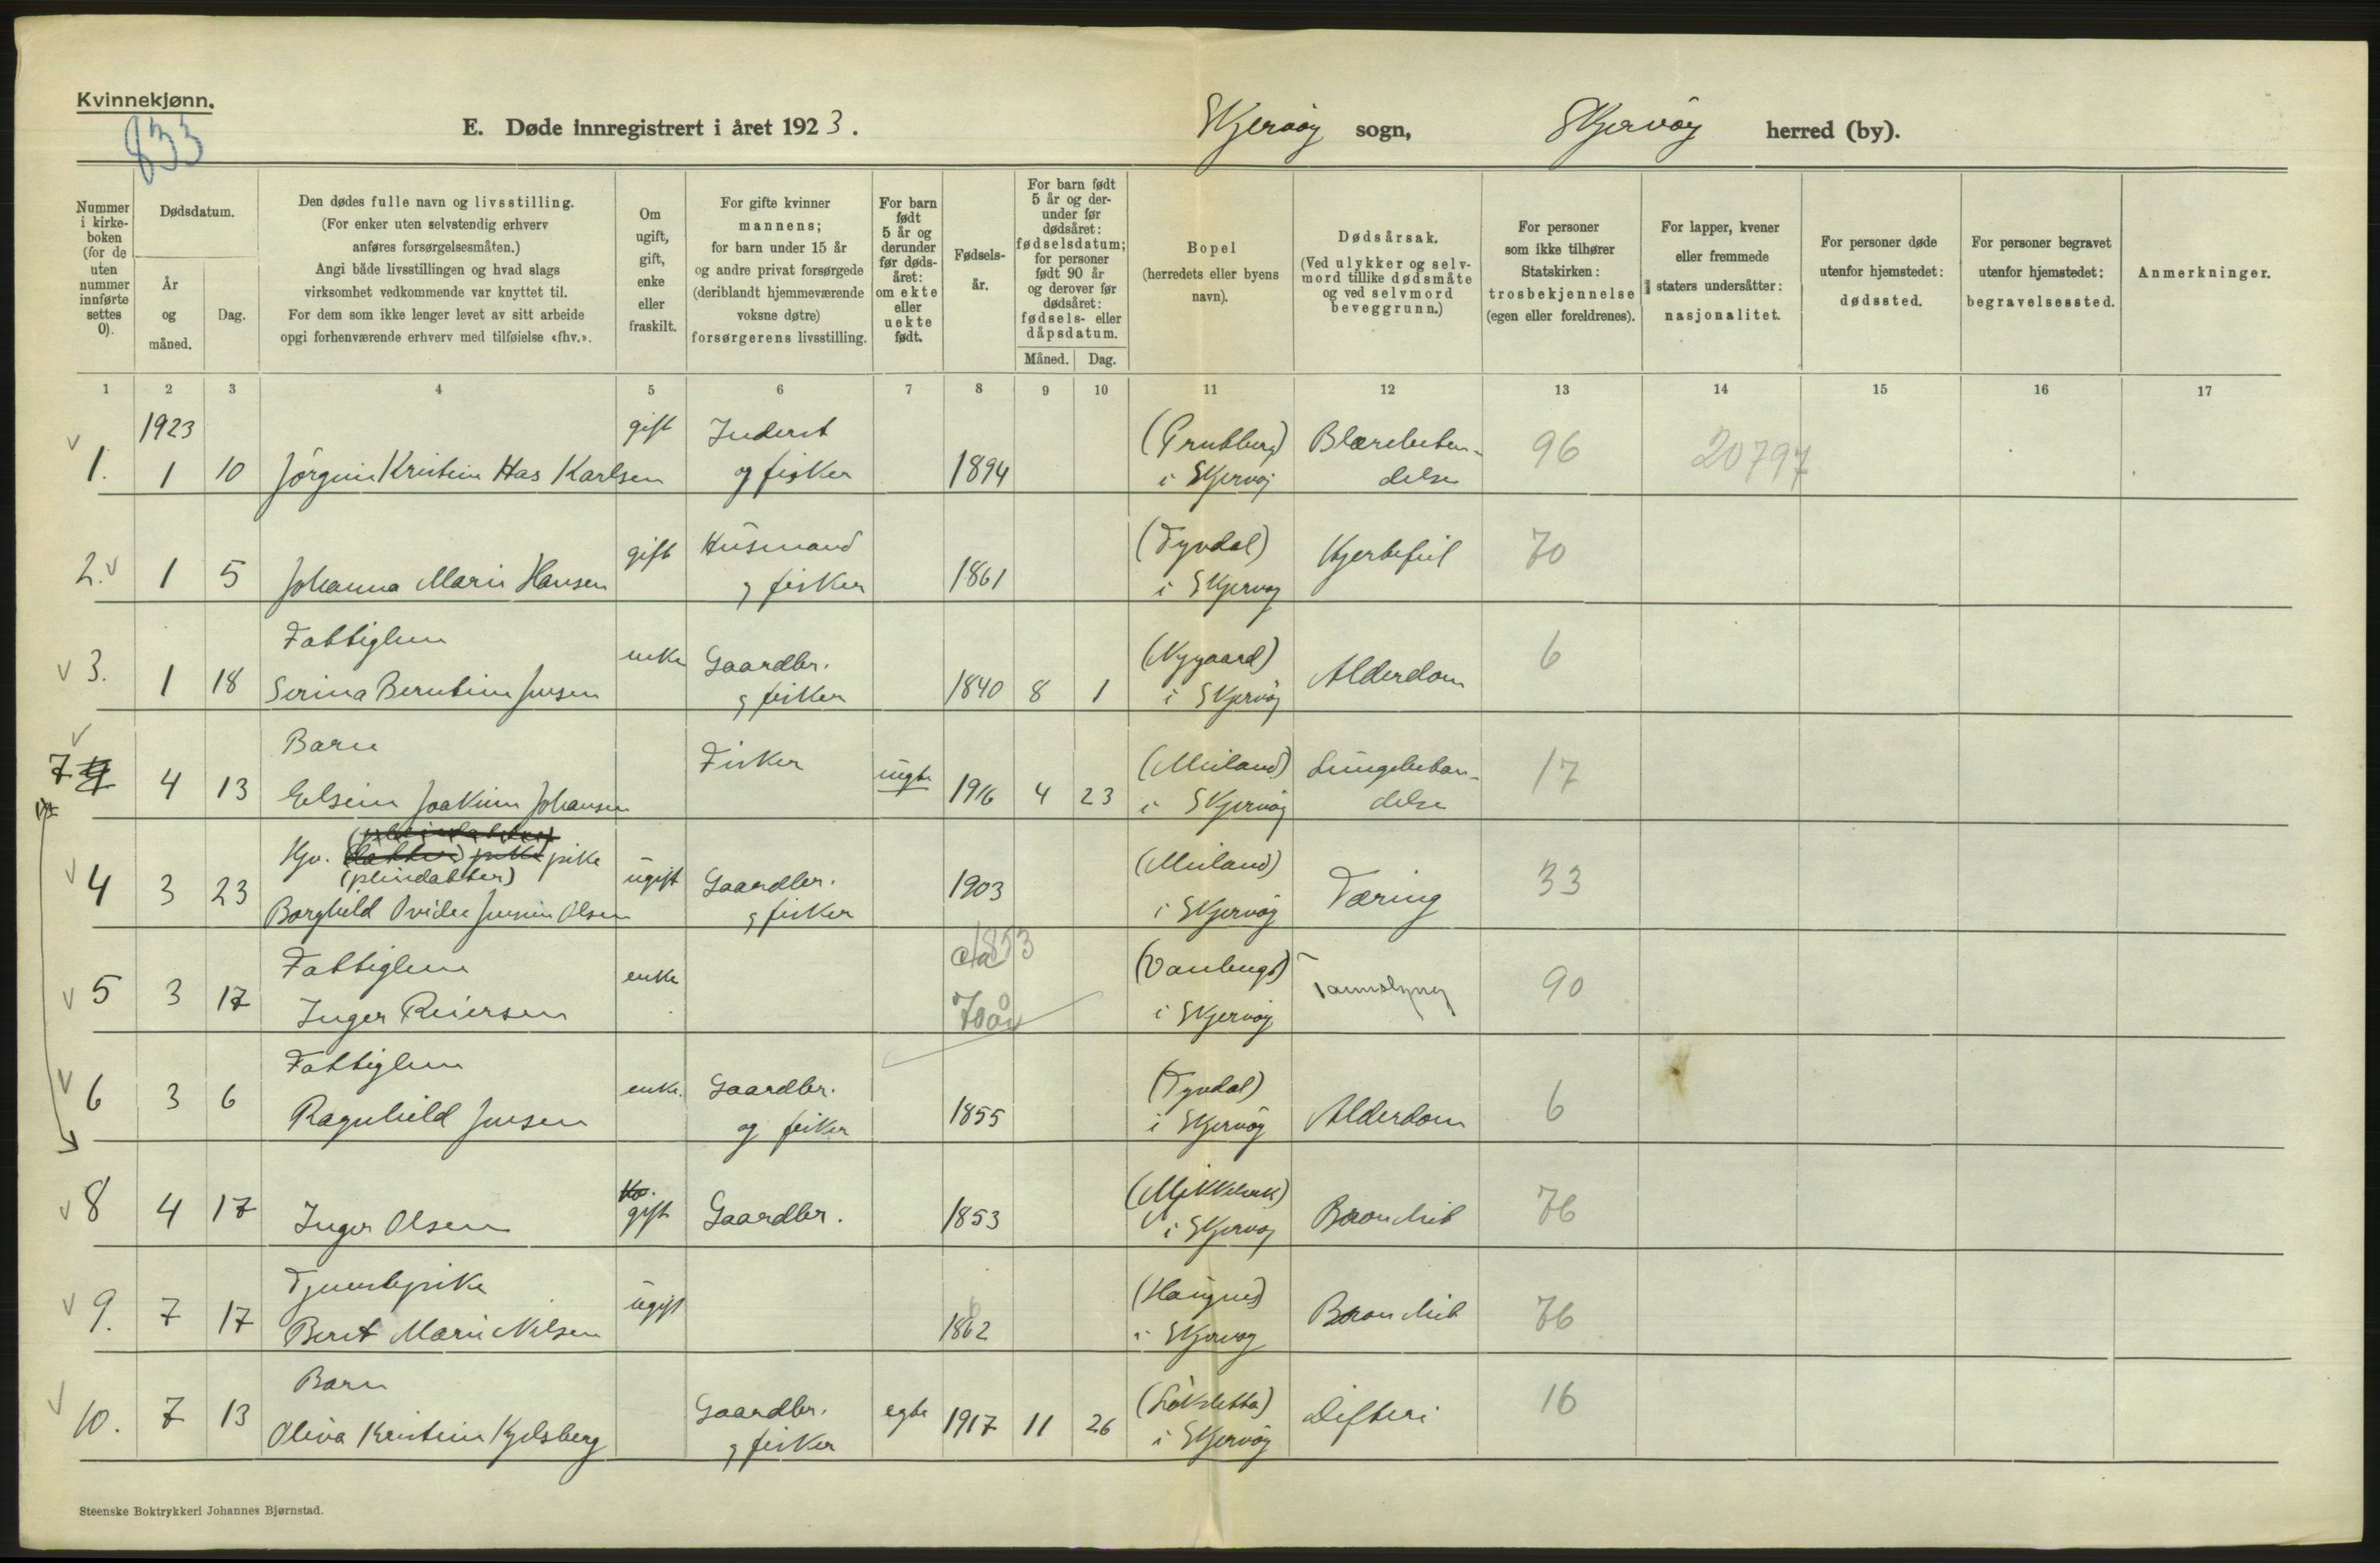 Kvinnekjønn.
833
E. Døde innregistrert i året 1923.
Skjervøy sogn, Skjervøy herred (by).
Nummer i kirke-boken (for de uten nummer innførte settes 0).
Dødsdatum.
År og måned.
Dag.
Den dødes fulle navn og livsstilling.
(For enker uten selvstendig erhverv
anføres forsørgelsesmåten.)
Angi både livsstillingen og hvad slags
virksomhet vedkommende var knyttet til.
For dem som ikke lenger levet av sitt arbeide
opgi forhenværende erhverv med tilføielse «fhv.».
Om ugift, gift, enke eller fraskilt.
For gifte kvinner
mannens;
for barn under 15 år
og andre privat forsørgede
(deriblandt hjemmeværende
voksne døtre)
forsørgerens livsstilling.
For barn født 5 år og derunder før døds-året: om ekte eller uekte født.
Fødsels-år.
For barn født 5 år og der-under før dødsåret: fødselsdatum; for personer født 90 år og derover før dødsåret: fødsels- eller dåpsdatum.
Måned. Dag.
Bopel
(herredets eller byens
navn).
Dødsårsak.
(Ved ulykker og selv-
mord tillike dødsmåte
og ved selvmord
beveggrunn.)
For personer
som ikke tilhører
Statskirken:
trosbekjennelse
(egen eller foreldrenes).
For lapper, kvener
eller fremmede
staters undersåtter:
nasjonalitet.
For personer døde
utenfor hjemstedet:
dødssted.
For personer begravet
utenfor hjemstedet:
begravelsessted.
Anmerkninger.
1 2 3 4 5 6 7 8 9 10 11 12 13 14 15 16 17
1923 gift Inderst (Grubberg) Blærebeten-
1. 1 10 Jörgine Kristine Has Karlsen og fisker 1894 i Skjervöy delse 96 20797
gift Husmand (Tyvdal) Hjertefeil 70
2. 1 5 Johanna Marie Hansen og fisker 1861 i Skjervøy
Fattiglem enke Gaardbr. (Nygaard) 6
3. 1 18 Serina Berntine Jensen og fisker 1840 8 1 i Skjervöy Alderdom
Barn Fisker uegte (Meiland) Lungebetæn- 17
7 4 13 Elsine Joakime Johansen 1916 4 23 i Skjervöy delse
Hjv. pike
(pleiedatter) ugift Gaardbr. (Meiland) Tæring 33
4 3 23 Borghild Ovidie Jensine Olsen og fisker 1903 i Skjervöy
Fattiglem enke cta 1853
5 3 17 Inger Reiersen 70 år i Skjervöy 90
Fattiglem enke. Gaardbr. (Tyvdal) 6
6 3 6 Ragnhild Jensen og fisker 1855 i Skjervöy Alderdom
8 4 17 Inger Olsen gift Gaardbr. 1853 (Mikkelvik) i Skjervöy Bronchit 76
Tjenestepike ugift (Haugnes) Bronchit 76
9. 7 17 Berit Marie Nilsen 1862 i Skjervøy
Barn Gaardbr. egte (Løksletta) Difteri 16
10. 7 13 Oliva Kristine Kjelsberg og fisker 1917 11 26 i Skjervöy
Steenske Boktrykkeri Johannes Bjørnstad.